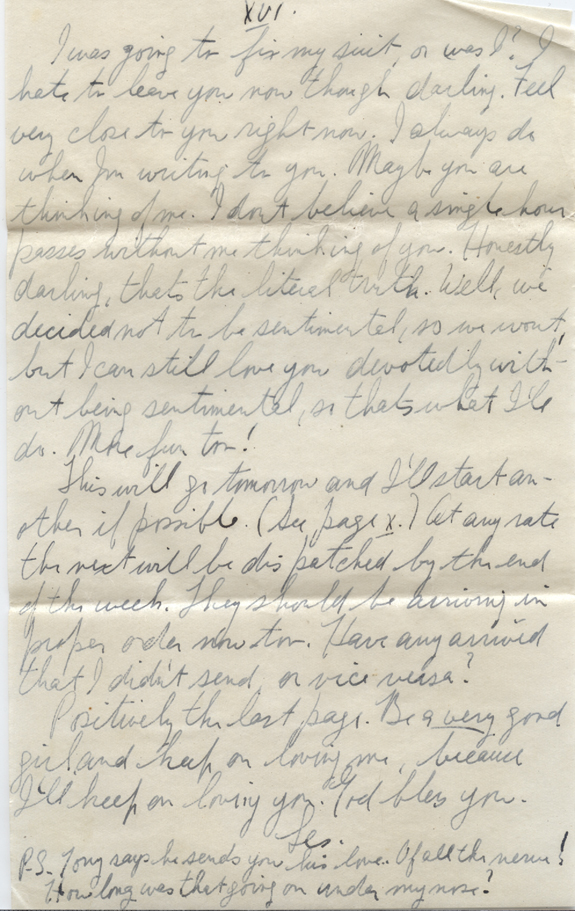 XVI.
I was going to fix my suit, or was I? I
hate to leave you now though darling. Feel
very close to you right now. I always do
when I'm writing to you. Maybe you are
thinking of me. I don't believe a single hour
passes without me thinking of you. Honestly
darling, thats the literal truth. Well, we
decided not to be sentimental, so we wont,
but I can still love you devotedly with-
out being sentimental, so thats what I'll
do. More fun too!
This will go tomorrow and I'll start an-
other if possible. (See page X.) At any rate
the next will be dispatched by the end
of the week. They should be arriving in
proper order now too. Have any arrived
that I didn't send, or vice versa?
Positively the last page. Be a very good
girl and keep on loving me, because
I'll keep on loving you. God bless you.
Les.
P.S. Tony says he sends you his love. Of all the nerve!
How long was that going on under my nose?